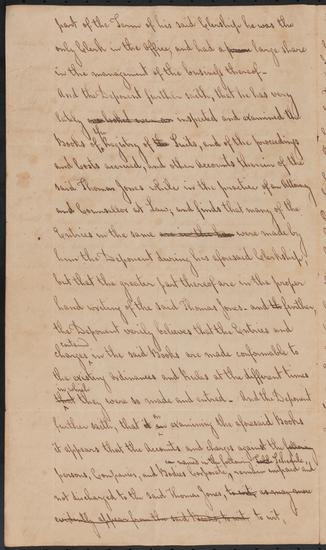 part of the Term of his said Clerkship he was the
only Clerk in the office, and had a large share
in the management of the business thereof—
And the Deponent further saith, that he has very
lately inspected and examined the
Books of the Registry of Suits, and of the proceedings
and Costs accrued, and other Accounts therein of the
said Thomas Jones while in the practice of an Attorney
and Counsellor at Law, and finds that many of the
Entries in the same were made by
him the Deponent during his aforesaid Clerkship,
but that the greater part thereof are in the proper
hand writing of the said Thomas Jones. and further,
the Deponent verily believes that the Entries and
stated
charges in the said Books are made conformable to
the existing ordinances and Rules at the different times
in which
they were so made and entered.— And the Deponent
further saith, that on examining the aforesaid Books
it appears that the Accounts and charges against the
as named in the following Schedule,
persons, Companies, and Bodies Corporate, remain unpaid and
not discharged to the said Thomas Jones, as may more
evidently appear from the said to wit,